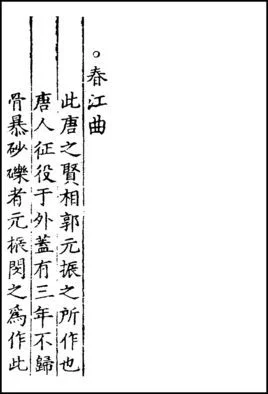 。春江曲
此唐之賢相郭元振之所作也
唐人征役于外蓋有三年不歸
骨暴砂礫者元振閔之爲作此